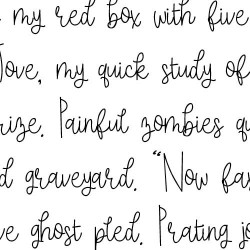 my red box with five
Jove, my quick study of
rize. Painful zombies qu
d graveyard. "Now fax
ve ghost pled. Prating js